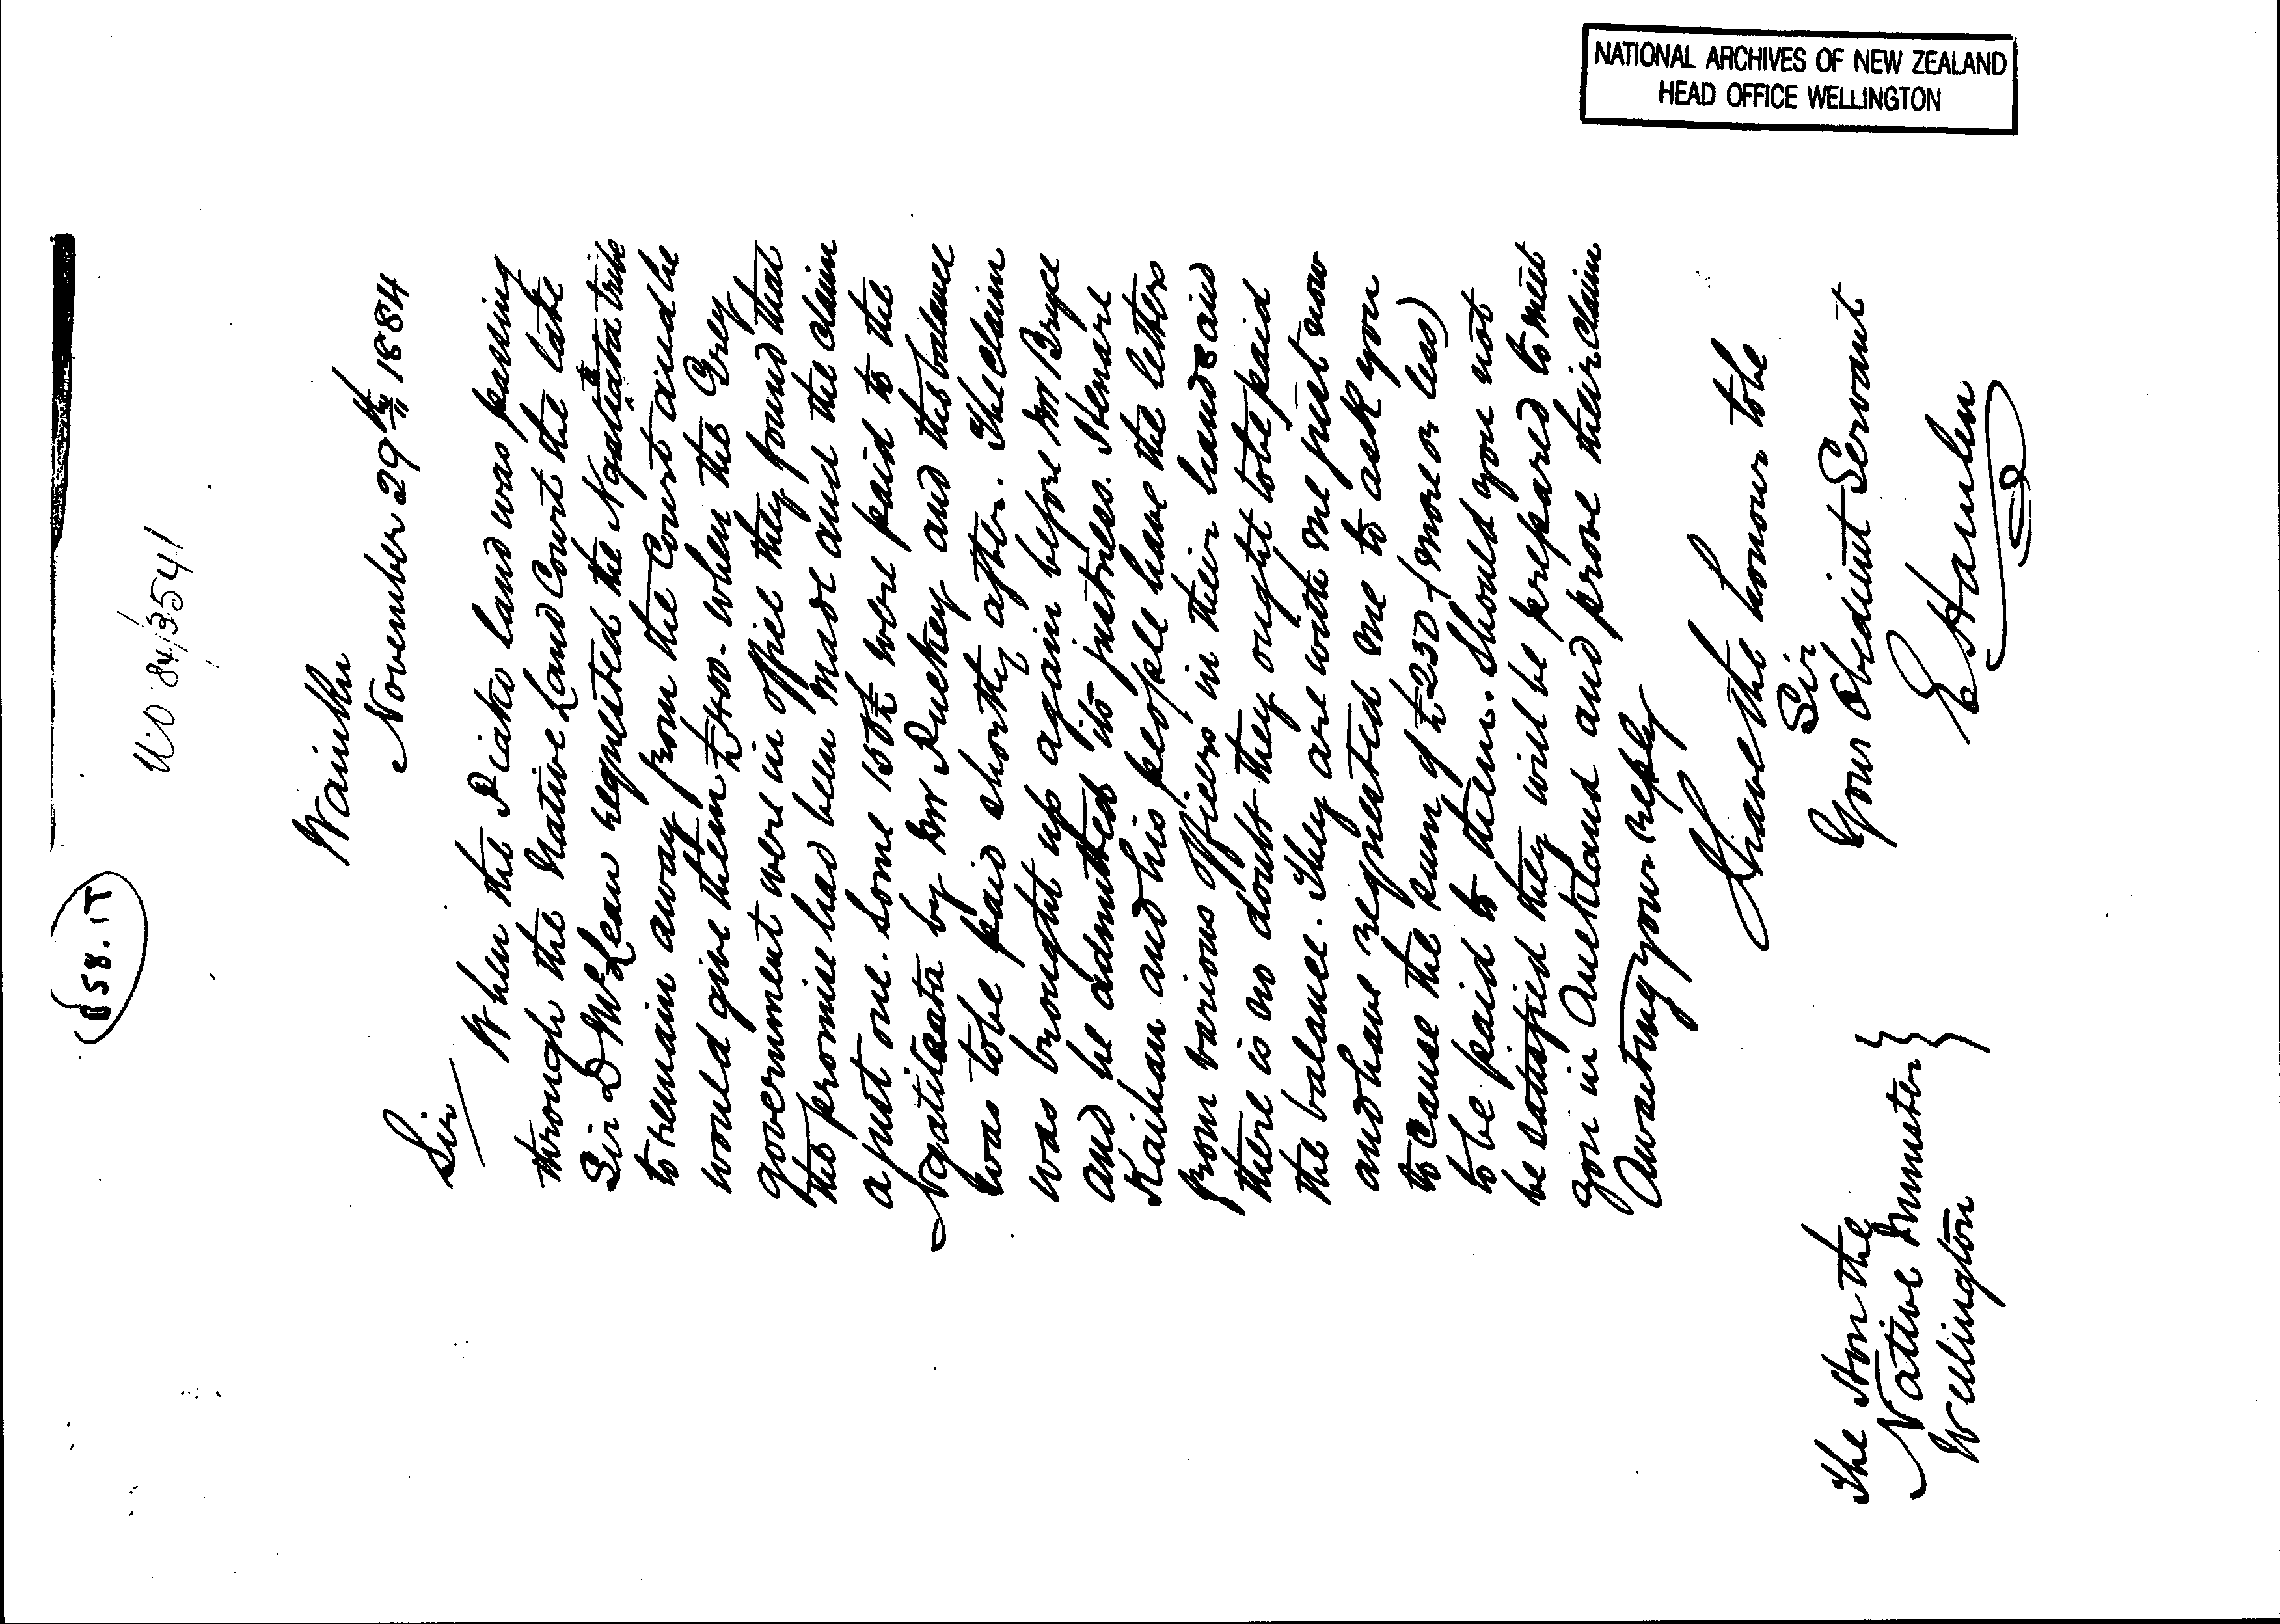 NATIONAL ARCHIVES OF NEW ZEALAND
HEAD OFFICE WELLINGTON
B58.17
N.O 84/3541
November 29th 1884
Sir
When the Piako land was passing
through the Native Land Court the late
Sir D McLean requested the tribe
to remain away from the Court and he
would give them £400. When the Grey
government were in office they found that
the promise had been made and the claim
a just one. Some 150£ were paid to the
by Mr Puckey and the balance
was to be paid shortly after. The claim
was brought up again before Mr Bryce
and he admitted its justness. Henare
Kaihau and his people have the letters
from various officers in their hands and
there is no doubt they ought to be paid
the balance. They are with me just now
and have requested me to ask you
to cause the sum of £250 (more or less)
to be paid to them. Should you not
be satisfied they will be prepared to meet
you in Auckland and prove their claim
Awaiting your reply
I have the honour to be
Sir
Your Obedient Servant
E Hamlin
The Hon the
Native Minister
Wellington